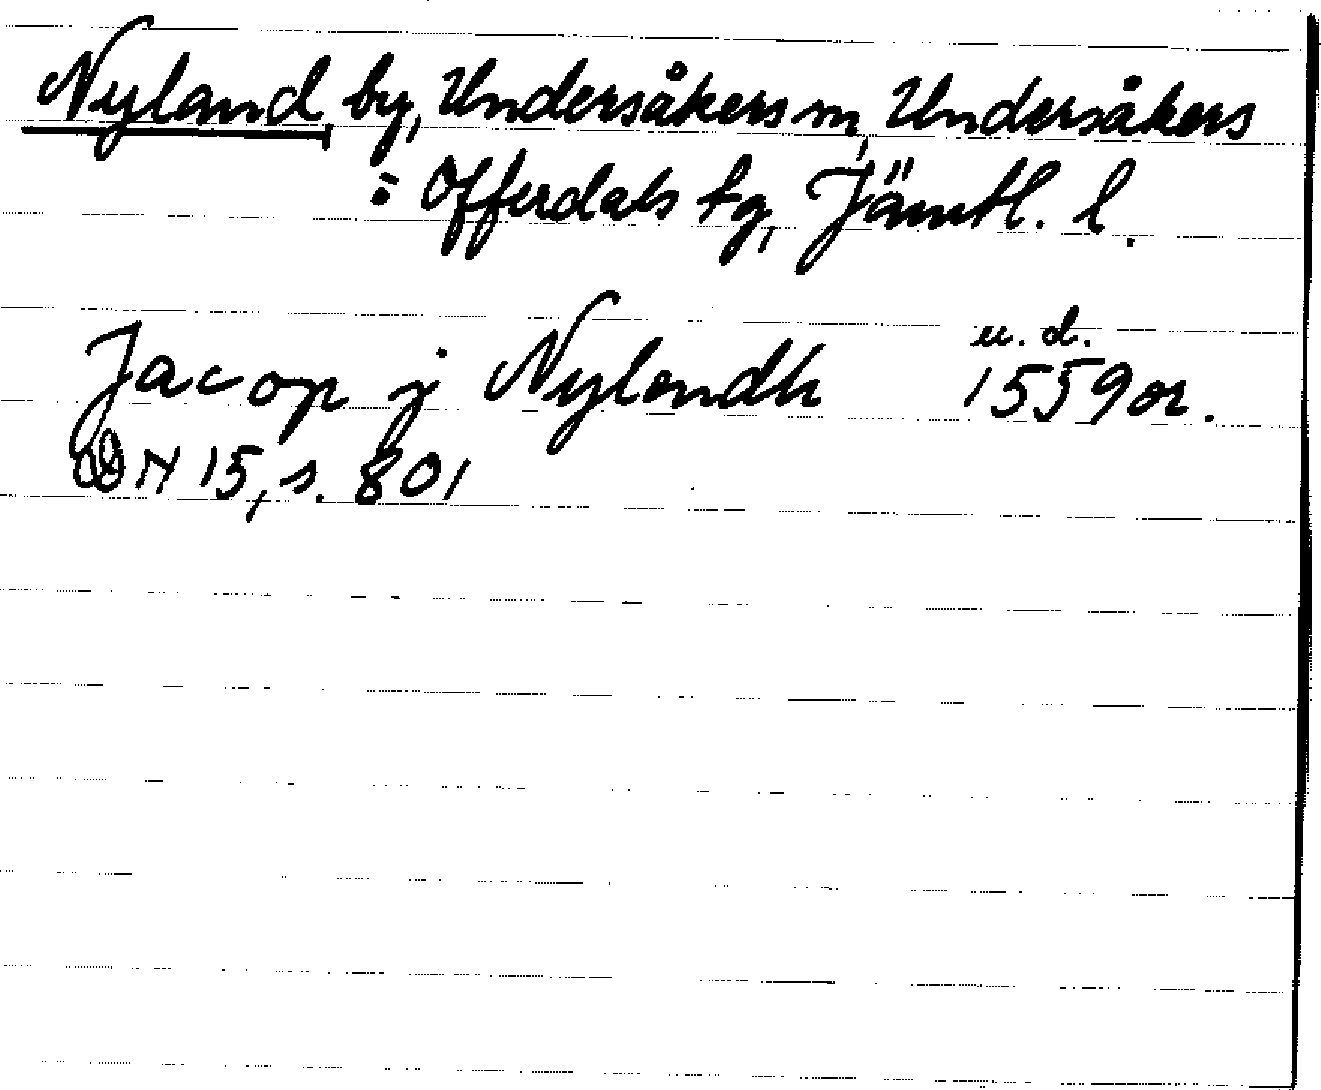 Nyland, by, Undersåkers sn, Undersåkers
= Offerdals tg, Jämtl. l.
u. d.
Jacop j Nylandh 1559 or.
DN 15, s. 801